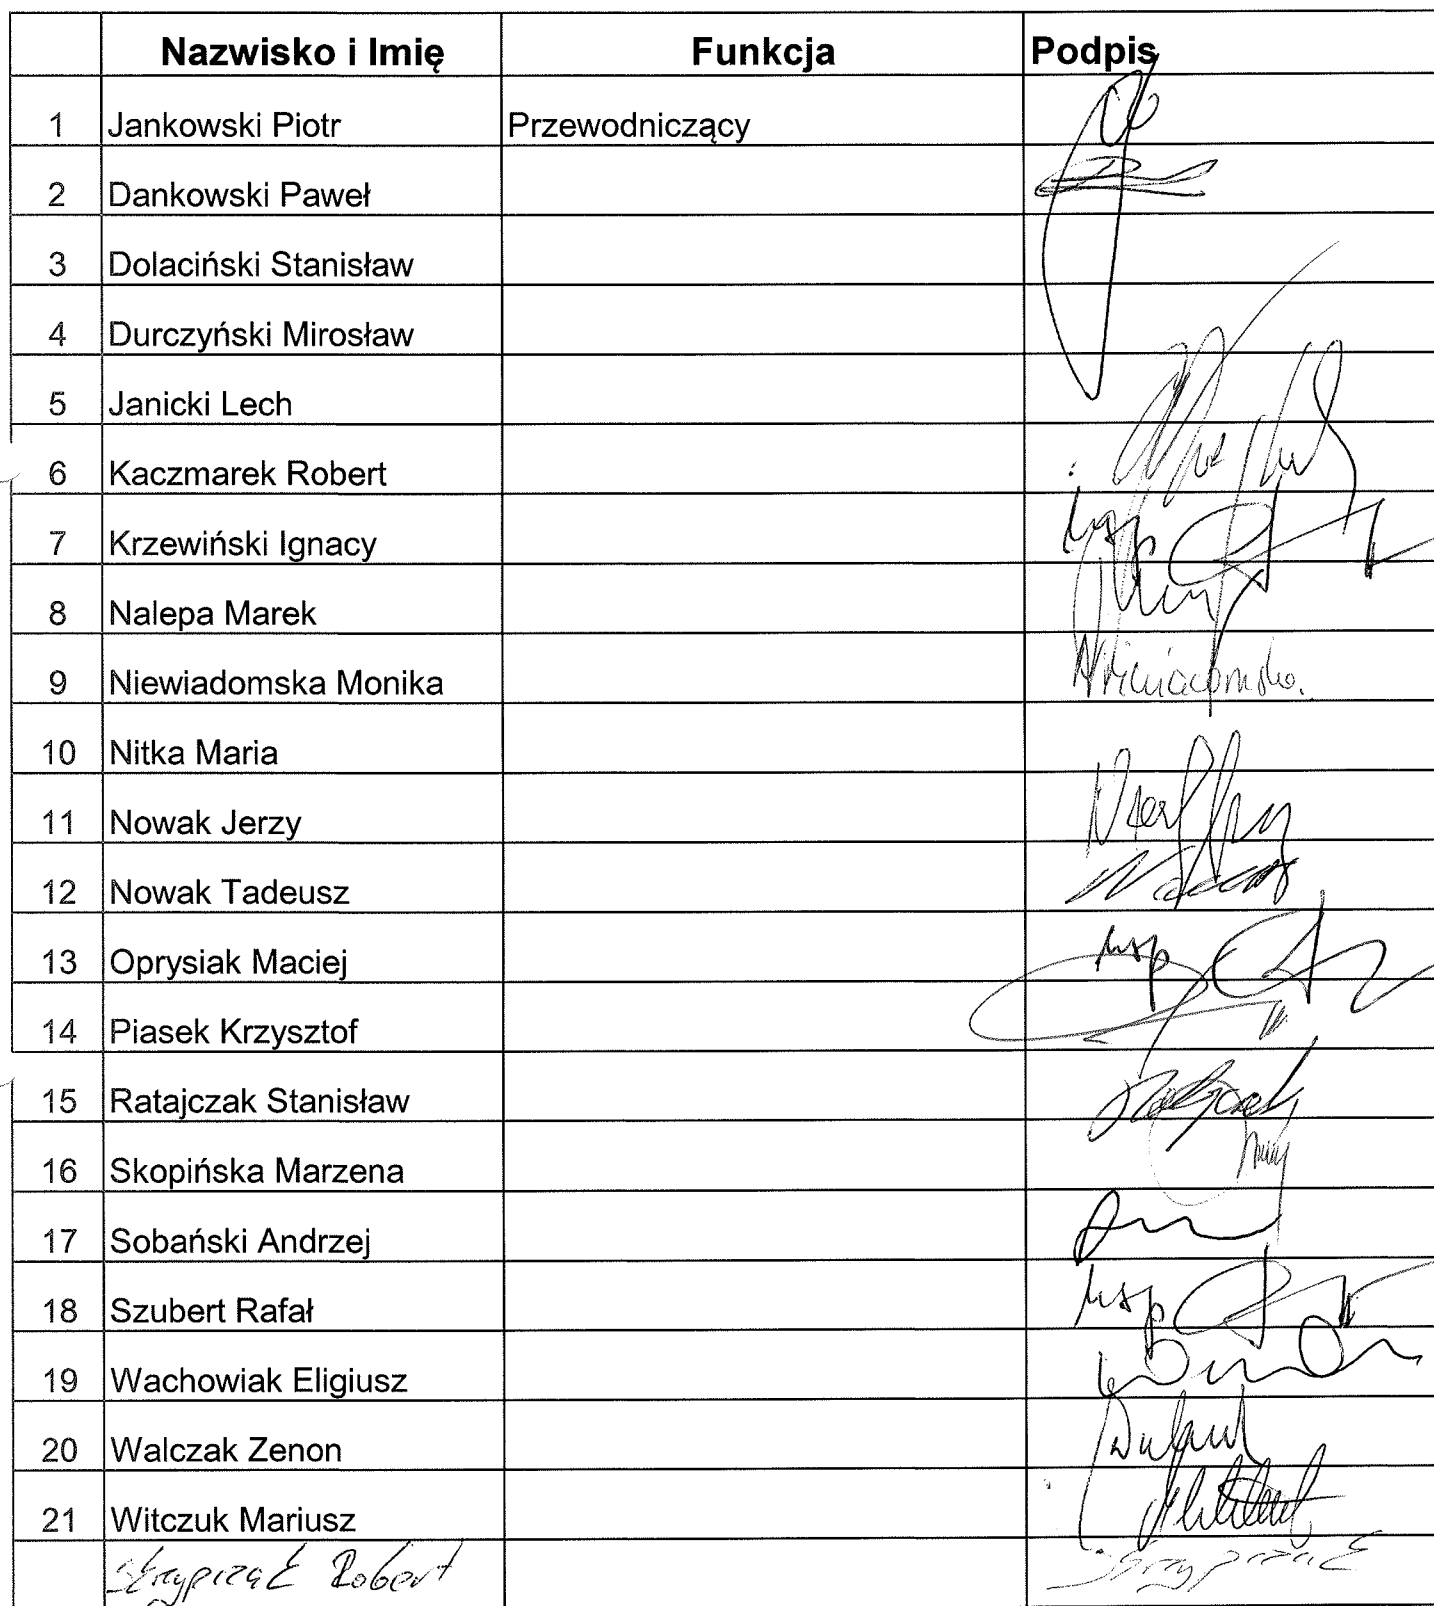 Nazwisko i Imię Funkcja Podpis
1 Jankowski Piotr Przewodniczący
2 Dankowski Paweł
3 Dolaciński Stanisław
4 Durczyński Mirosław
5 Janicki Lech
6 Kaczmarek Robert
7 Krzewiński Ignacy usp
8 Nalepa Marek
9 Niewiadomska Monika Niewiadomska.
10 Nitka Maria
11 Nowak Jerzy
12 Nowak Tadeusz
13 Oprysiak Maciej usp
14 Piasek Krzysztof
15 Ratajczak Stanisław
16 Skopińska Marzena
17 Sobański Andrzej
18 Szubert Rafał usp
19 Wachowiak Eligiusz
20 Walczak Zenon
21 Witczuk Mariusz
Skrzypczak Robert Skrzypczak